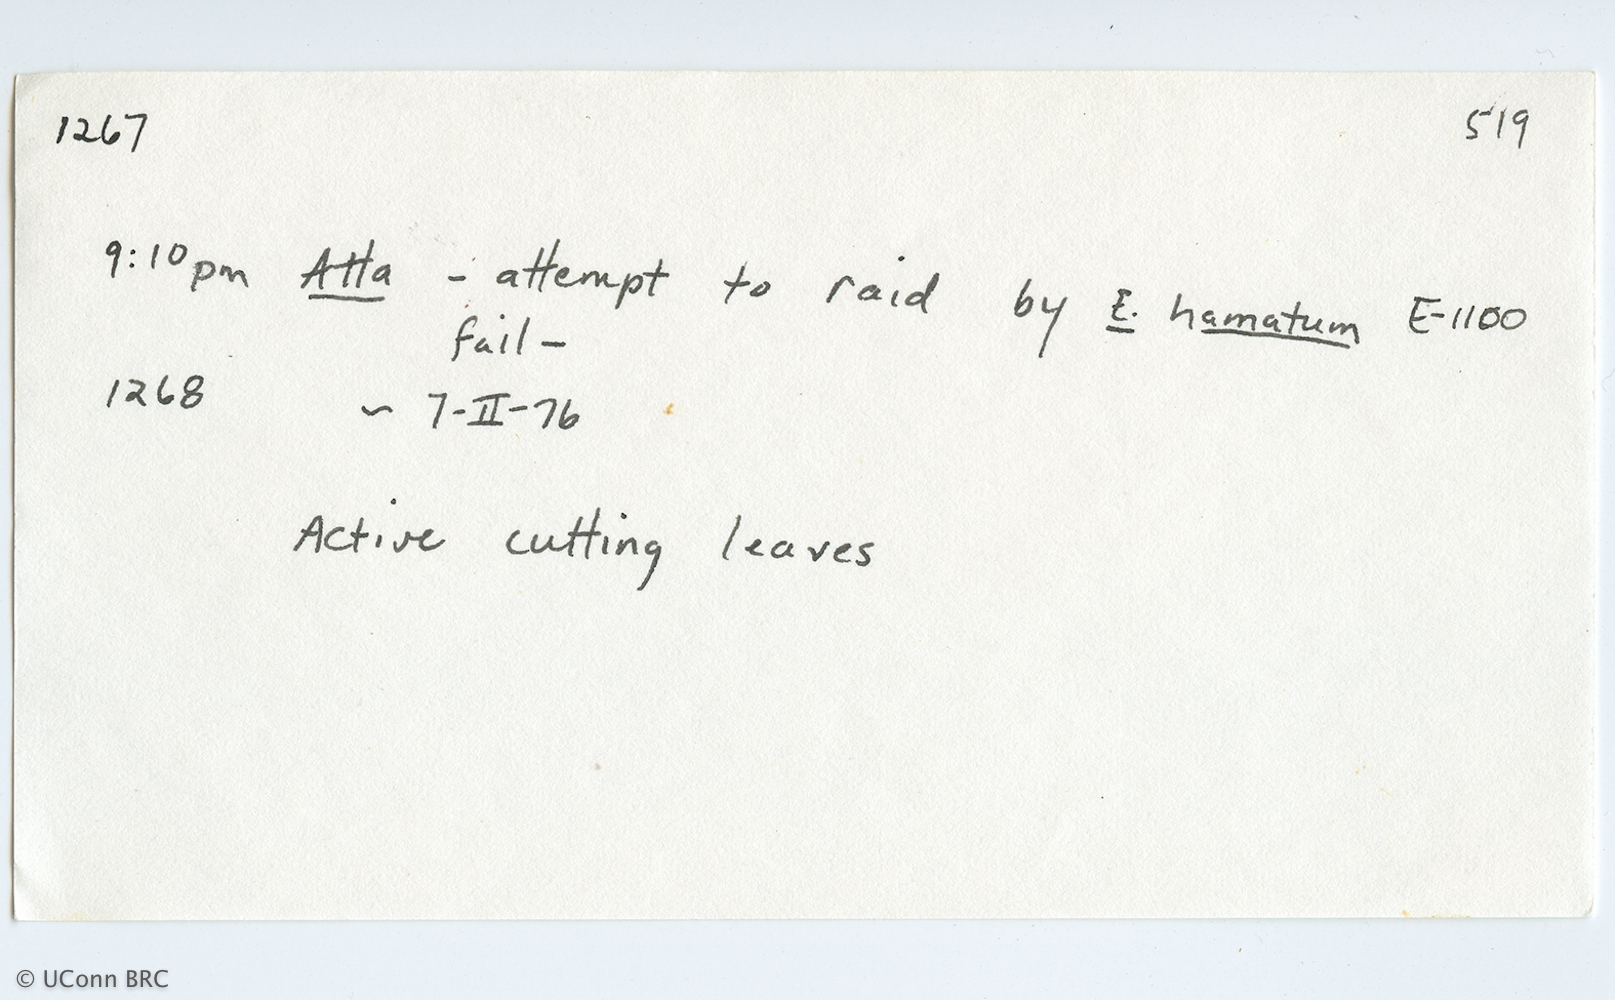 1267 519
9:10pm Atta - attempt to raid by E. hamatum E-1100
fail -
1268 ~ 7-II-76
Active cutting leaves
© UConn BRC